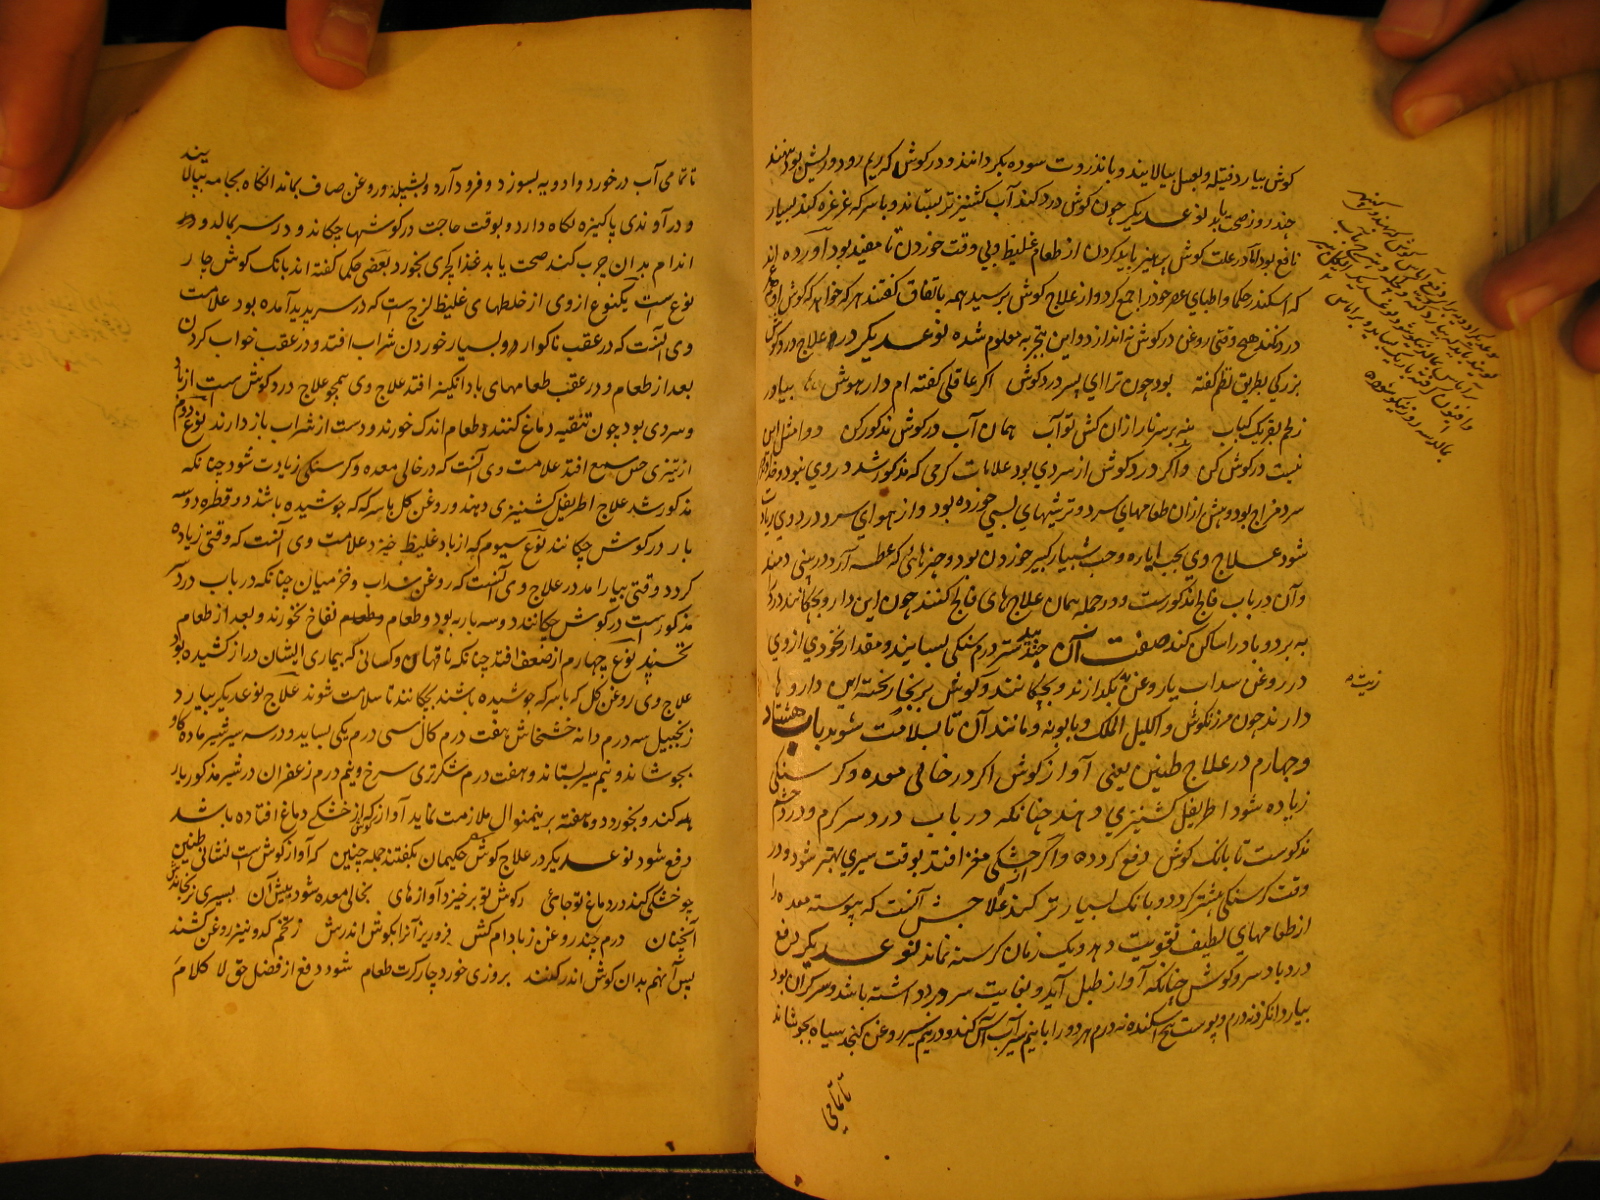 کوش بیارد فتیله و بعسل بیالایند و بانذروت سوده بکردانند و در کوش کریم رود و ریش بود نهند
چند روز صحت یابد نوعدیکر چون کوش درد کند آب کشنیز تر بستاند و با سرکه غرغره کند بسیار
نافع بود اما در علت کوش پرهیز باید کردن از طعام غلیظ و بی وقت خوردن تا مفید بود آورده اند
که اسکندر حکما و اطبای عصر خود را جمع کرد و از علاج کوش برسید همه باتفاق کفتند هر که خواهد که کوش او
درد نکند هیچ وقتی روغن در کوش نه اندازد و این بتجربه معلوم شده نوعدیکر در علاج درد کوش
بزرکی بطریق نظم کفته بود چون ترا ای پسر درد کوش اکر عاقلی کفته ام دار هوش بیاور
کباب بنه بر سر نار از ان کش تو آب همان آب در کوش
در کوش کن و اکر درد کوش از سردی بود علامات کرمی که مذکور شد در وی نبود و خداوند
سرد مزاج بود و پیش ازان طعامهای سرد و ترشیهای بسی خورده بود و از هوای سرد درد وی زیادت
شود علاج وی بحب ایاره و حب شبیار کبیر خوردن بود و چیزهائی که عطسه آرد در بینی دمند
و آن در باب فالج مذکورست و در جمله همان علاجهای فالج کنند چون این دارو بچکانند درد
به برد و باد را ساکن کند صفت آن جندبیدستر درم سنکی بسایند و مقدار نخودی از وی
در روغن سداب یا روغن به بکدازند و بچکانند و کوش بر بخار پخته این داروها
دارند چون مرزنکوش و اکلیل الملک و بابونه و مانند آن تا بسلامت شود باب هشتاد
و چهارم در علاج طنین یعنی آواز کوش اکر در خالی معده و کرسنکی
زیاده شود اطریفل کشنیزی دهند چنانکه در باب درد سر کرم و در چشم
مذکوست تا بانک کوش دفع کردد و اکر از خشکی مغز افتد بوقت سیری بهتر شود و در
وقت کرسنکی بیشتر کردد و بانک بسیار تر کند علاجش آنست که پیوسته معده را
از طعامهای لطیف تقویت دهد و یک زمان کرسنه نماند نوعدیکر دفع
درد باد سر و کوش چنانکه آواز طبل آید و بغایت سر درد داشته باشد و سر کران بود
بیارد انکزد نه درم و پوست بیخ اسکنده نه درم هر دو را با نیم سیر آب آس کند و در نیم سیر روغن کنجد سیاه بجوشاند
تا تمامی
زیت
تا تمامی آب در خورد و ادویه بسوزد و فرود آرد و بشیلد و روغن صاف بماند انکاه بجامه بپالایند
و در آوندی پاکیزه نکاه دارد و بوقت حاجت در کوشها چکاند و در سر بمالد و در
اندام بدان چرب کند صحت یابد غذا کچری بخورد بعضی حکما کفته اند بانک کوش چار
نوع است یکنوع از وی از خلطهای غلیظ لزج است که در سر پدید آمده بود علامت
وی آنست که در عقب ناکوارد و بسیار خوردن شراب افتد و در عقب خواب کردن
بعد از طعام و در عقب طعامهای باد انکیزنده افتد علاج وی همچو علاج درد کوش ست از باد
و سردی بود چون تنقیه دماغ کنند و طعام اندک خورند و دست از شراب باز دارند نوع دوم
از تیزی حس سمع افتد علامت وی آنست که در خالی معده و کرسنکی زیادت شود چنانکه
مذکور شد علاج اطریفل کشنیزی دهند و روغن کل با سرکه که جوشیده باشند دو قطره دو سه
بار در کوش چکانند نوع سیوم که از باد غلیظ خیزد علامت وی آنست که وقتی زیاده
کردد و وقتی بیارامد در علاج وی آنست که روغن سداب و خر میان چنانکه در باب درد
مذکور است در کوش چکانند دو سه بار به بود و طعام نفاخ نخورند و بعد از طعام
نخسپند نوع چهارم از ضعف افتد چنانکه ناقهان و کسانی که بیماری ایشان دراز کشیده بود
علاج وی روغن کل که با سرکه جوشیده باشند بچکانند تا سلامت شوند علاج نوعدیکر بیارد
زنجبیل سه درم دانه خشخاش هفت درم کال سی درم یکی بساید و در سه سیر شیر ماده کاو
بجوشاند و نیم سیر بستاند و هفت درم شکر تری سرخ و نیم درم زعفران در شیر مذکور یار
کند و بخورد دو هفته برینمنوال ملازمت نماید آواز کوش که از خشکی دماغ افتاده باشد
دفع شود نوعدیکر در علاج کوش حکیمان بکفتند جمله چنین که آواز کوش ست نشانی طنین
چو خشکی کند در دماغ تو جای ز کوش تو بر خیزد آوازهای بخالی معده شود بیش آن بسیری نرنجاند
آنچنان درم چند روغن ز بادام کش فرو ریز آنرا بکوش اندرش ز تخم کدو نیز روغن کشند
پس آنهم بدان کوش اندر کنند بروزی خورد چار کرت طعام شود دفع از فضل حق لا کلام